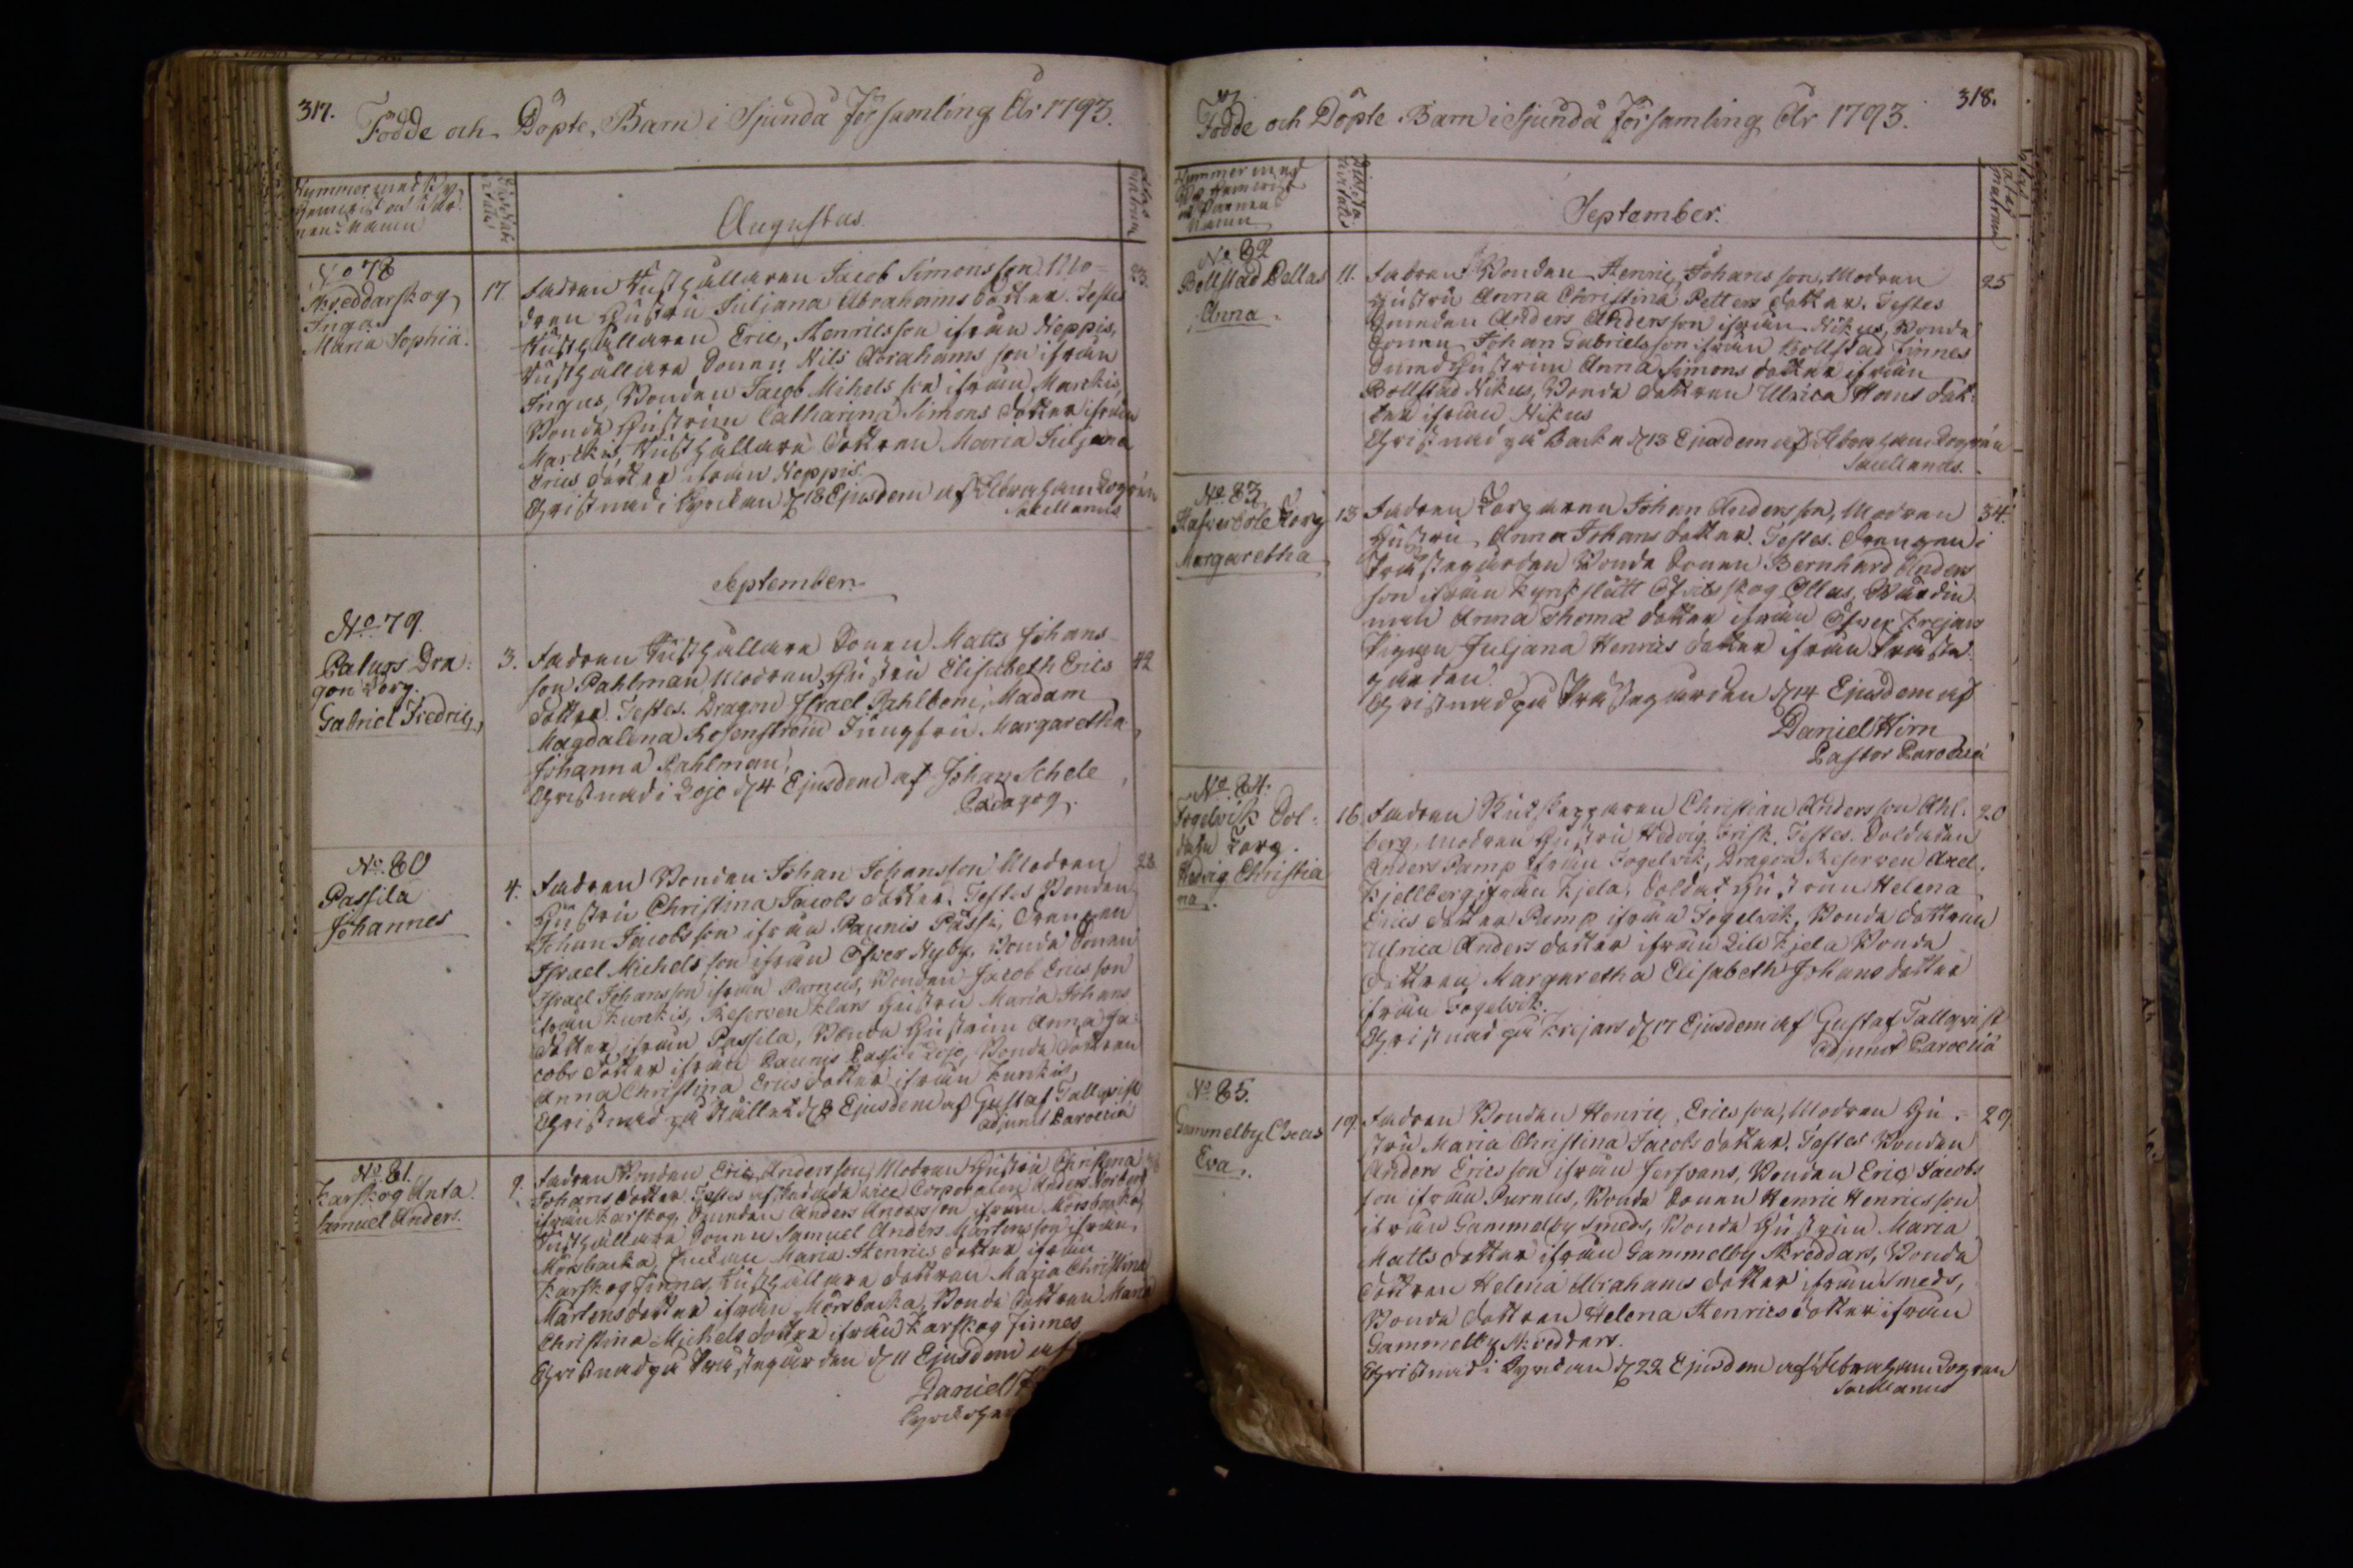 317.
Födde och Döpte Barn i Sjundå församling År 1793.
Nummer med By
Hemvist och Bar
nens Namn
Dies Nativitatis
Augustus.
ætas matrum
No 78
Skreddarskog
Ingas
Maria Sophia.
17.
Fadren Rusthållaren Jacob Simonsson Mo-
dren Hustru Juljana Abrahams dotter. Testes
Rusthållaren Eric Henricsson ifrån Noppis,
Rusthållare Sonen Nils Abrahamsson ifrån
Ingas, Bonden Jacob Mihelsson ifrån Marckis,
Bonde Hustrun Catharina Simons dotter ifrån
Marckis, Rusthållare dottren Maria Juljana
Erics dotter ifrån Noppis.
Christnad i Kyrckan d 18 Ejusdem af Abraham Logrén
Sacellanus
September.
No 79.
Palugs Dra-
gon Torg.
Gabriel Fredric
3.
Fadren Rusthållare Sonen Matts Johans
son Pahlman, Modren Hustru Elisabeth Erics
dotter. Testes. Dragon Israel Pahlbom, Madam
Magdalena Rosenström Jungfru Margaretha
Johanna Pahlman,
Christnad i Lojo d 4 Ejusdem af Johan Schele
Pædagog.
42
No 80
Passila
Johannes
4.
Fadren Bonden Johan Johansson Modren
Hustru Christina Jacobs dotter. Testes Bonden
Johan Jacobsson ifrån Paunis Passi, Drengen
Israel Michelsson ifrån Öfver Nyby, Bonde Sonen
Israel Johansson ifrån Purnus, Bonden Jacob Ericsson
ifrån Kurckis, Reserven Klars Hustru Maria Johans
dotter ifrån Passila, Bonde Hustrun Anna Ja-
cobs dotter ifrån Paunis Passi i Lojo, Bonde dottren
Anna Christina Erics dotter ifrån Kurckis,
Christnad på stället d 8 Ejusdem af Gustaf Tallqvist
Adjunct Paroeciæ
No 81.
Karskog Anta
Samuel Anders.
9.
Fadren Bonden Eric Andersson, Modren Hustru Christina
Johans dotter. Testes vice Corporalen Anders
ifrån Karskog, Anders Andersson ifrån Mörsbacka,
Rusthållare Sonen Samuel Anders Mårtensson ifrån
Mörsbacka, Maria Henrics dotter ifrån
Karskog Finnes, Rusthållare dottren Maria Christina
Mårtens dotter ifrån Mörsbacka, Bonde dottren Maria
Christina Michels dotter ifrån Karskog Finnes
Christnad på Prästegården d 11 Ejusdem af
Daniel
318.
Födde och Döpte Barn i Sjundå församling År 1793.
Nummer med
By Hemvist
och Barnens
Namn
Dies Nativitatis
September.
ætas matrum
No 82
Bollstad Bellas
Anna.
11.
Fadren Bonden Henric Johansson, Modren
Hustru Anna Christina Petters dotter. Testes
Smeden Anders Andersson ifrån Nikus, Bonde
Sonen Johan Gabrielsson ifrån Bollstad Finnes
Smed Hustrun Anna Simons dotter ifrån
Bollstad Nikus, Bonde dottren Ulrica Hans dot-
ter ifrån Nikus
Christnad på Backa d 13 Ejusdem af Abraham Logrén
Sacellanus.
25
No 83
Torg
Margaretha
13
Fadren Torparen Johan Andersson, Modren
Hustru Anna Johans dotter. Testes. Drengen i
Prästegården Bonde Sonen Bernhard Anders
son ifrån Kyrkslätt Ollas, Wärdin-
nan Anna Thomæ dotter ifrån Öfver Krejars
Pigan Juljana Henrics dotter ifrån Präste-
gården.
Christnad på Prästegården d 14 Ejusdem af
Daniel Hirn
Pastor Paroeciæ
34.
No 84.
Fogelvik Sol-
date Torg.
Hedvig Christia
na.
16.
Fadren Christian Andersson Ahl-
berg, Modren Hustru Hedvig Frisk. Testes. Soldaten
Anders Pamp ifrån Fogelvik, Dragon Reserven Axel
Kjellberg ifrån Kjela, Soldat Hustrun Helena
Erics dotter Pamp ifrån Fogelvik, Bonde dottren
Ulrica Anders dotter ifrån Lill Kjela Bonde
dottren Margaretha Elisabeth Johans dotter
ifrån Fogelvik.
Christnad på Krejars d 17 Ejusdem af Gustaf Tallqvist
Adjunct Paroeciæ
20
No 85.
Gammelby
Eva.
19.
Fadren Bonden Henric Ericsson, Modren Hu-
stru Maria Christina Jacobs dotter. Testes Bonden
Anders Ericsson ifrån Bonden Eric Jacobs
son ifrån Purnus, Bonde Sonen Henric Henricsson
ifrån Gammelby Smeds, Bonde Hustrun Maria
Matts dotter ifrån Gammelby Skreddars, Bonde
dottren Helena Abrahams dotter ifrån Smeds,
Bonde dottren Helena Henrics dotter ifrån
Gammelby Skreddars.
Christnad i Kyrckan d 22 Ejusdem af Abraham Logrén
Sacellanus
29